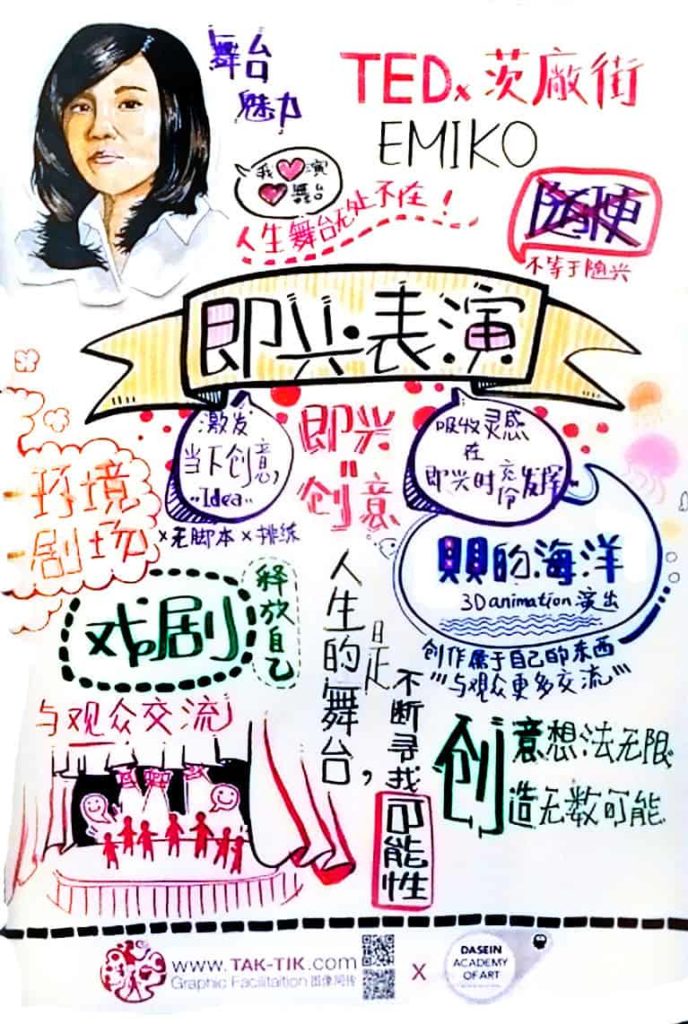 舞台
魅力
TEDx 茨廠街
EMIKO
我❤演
❤舞台
人生舞台无处不在！
随便
不等于随兴
即兴·表演
激发
当下创意,
"Idea"
×无脚本×排练
即兴
=
创意
吸收灵感
在
即兴时充份发挥
环境
剧场
的海洋
3D animation 演出
戏剧
释放自己
创作属于自己的东西
"与观众更多交流"
人生的舞台,
是
不断寻找
可能性
与观众交流
创意想法无限
创造无数可能
www.TAK-TIK.com
Graphic Facilitation 图像同传
X
DASEIN
ACADEMY
OF ART